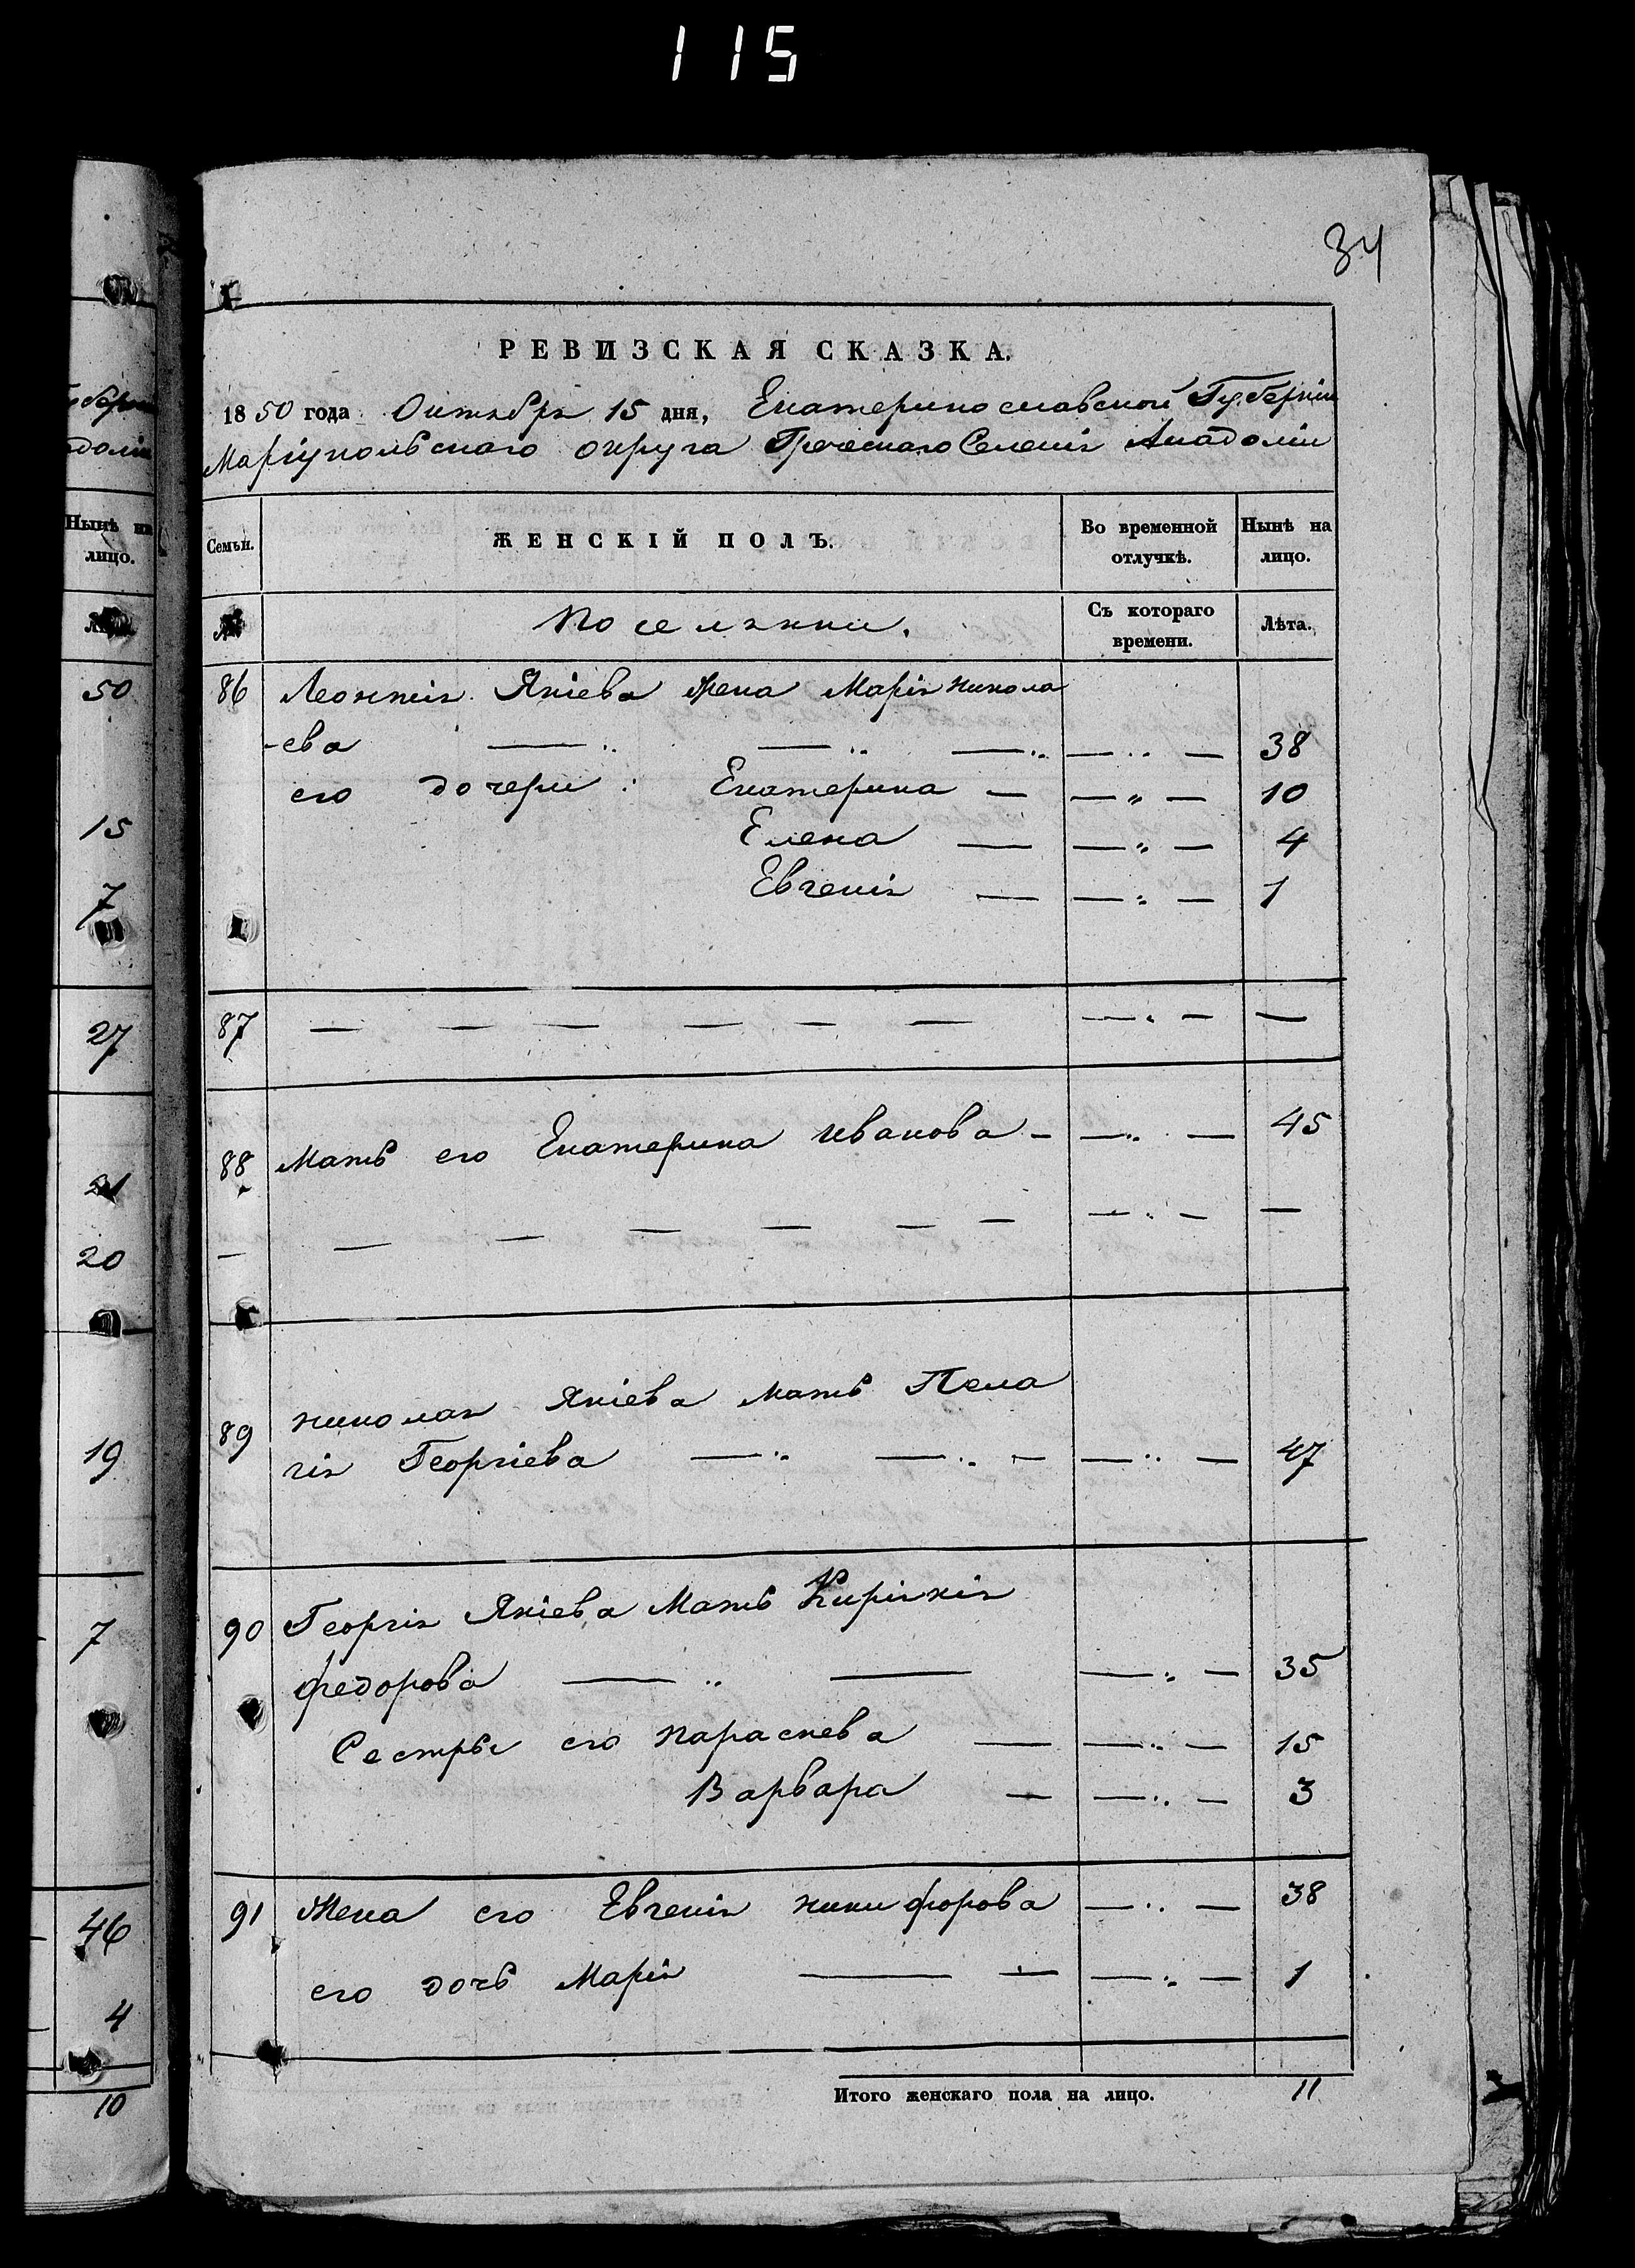 115
34
РЕВИЗСКАЯ СКАЗКА.
1850 года Октября 15 дня, Екатеринославской Губерніи
Маріупольскаго округа Греческаго Селенія Анадоліи
Нынѣ на лицо.
50
15
7
27
21
20
19
7
46
4
10
Семьи.
ЖЕНСКІЙ ПОЛЪ.
Во временной отлучкѣ.
Нынѣ на лицо.
№
Поселянки.
Съ котораго времени.
Лѣта.
86 Леонтія Якіева жена Марія Никола
-ева — „ — „ — „ — „ — 38
его дочери: Екатерина — — „ — 10
Елена — — „ — 4
Евгенія — — „ — 1
87 — — — — — — — „ — —
88 Мать его Екатерина Иванова - — „ — 45
— — — — — — — — „ — —
89 Николая Якіева мать Пела
гія Георгіева — „ — „ — — „ — 47
90 Георгія Якіева Мать Киріякія
Федорова — „ — — „ — 35
Сестры его Параскева — — „ — 15
Варвара — — „ — 3
91 Жена его Евгенія Никифорова — „ — 38
его дочь Марія — — — „ — 1
Итого женскаго пола на лицо. 11